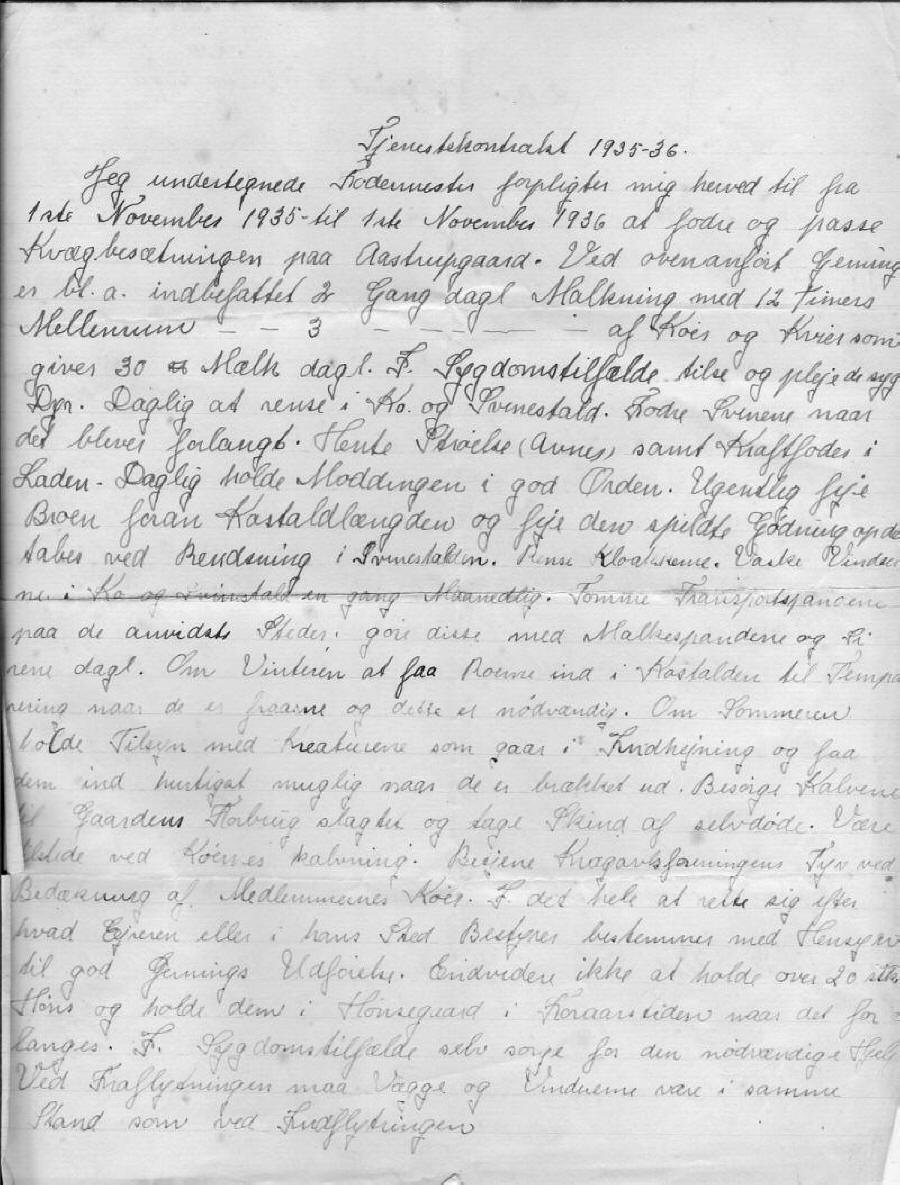 Tjenestekontrakt 1935-36.
Jeg undertegnede Fodermester forpligter mig herved til fra
1ste November 1935 til 1ste November 1936 at fodre og passe
Kvægbesætningen paa Aastrupgaard. Ved ovenanført Gerning
er bl.a. indbefattet 2 Gang dagl Malkning med 12 Timers
Mellemrum – – 3 – – – – – af Køer og Kvier som
giver 30 Mælk dagl. I Sygdomstilfælde tilse og pleje de syg
Dyr. Daglig at rense i Ko. og Svinestald. Fodre Svinene naar
det bliver forlangt. Hente Strøelse (Avner) samt Kraftfoder i
Laden. Daglig holde Moddingen i god Orden. Ugentlig feje
Broen foran Kostaldlængden og feje den spildte Gødning op de
tabes ved Rendsning i Svinestalden. Rense Kloakkerne. Vaske Vindue
ne i Ko og Svinstald en gang Maanedlig. Tømme Transportspandene
paa de anvidste Steder. göre disse med Malkespandene og Si
rene dagl. Om Vinteren at faa Roerne ind i Kostalden til Tempe
rering naar de er frosne og dette er nödvændig. Om Sommeren
holde Tilsyn med Kreaturene som gaar i Indhejning og faa
dem ind hurtigst muglig naar de er brækket ud. Besörge Kalvene
til Gaardens Forbrug slagtet og tage Skind af selvdøde. Være
tilstede ved Køernes kalvning. Betjene Kvægavlsforeningens Tyr ved
Bedækning af Medlemmernes Köer. I det hele at rette sig efter
hvad Ejeren eller i hans Sted Bestyrer bestemmer med Hensyn
til god Gernings Udförelse. Endvidere ikke at holde over 20 stk
Höns og holde dem i Hönsegaard i Foraarstiden naar det for
langes. I Sygdomstilfælde selv sørge for den nödvændige Hjelp
Ved Fraflytningen maa Vægge og Vinduerne være i samme
Stand som ved Indflytningen